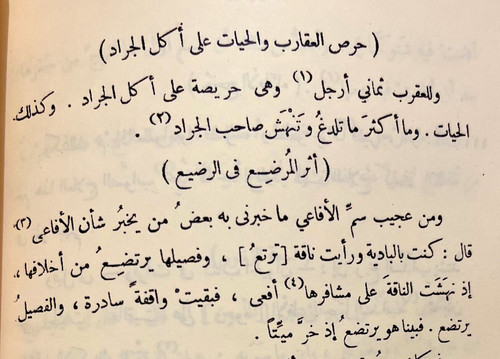 ( حرص العقارب والحيات على أكل الجراد )
وللعقرب ثماني أرجل (١) وهى حريصة على أكل الجراد . وكذلك
الحيات . وما أكثر ما تلدغُ وتَنْهَش صاحب الجراد (٢) .
( أثر المُرضِع فى الرضيع )
ومن عجيب سمِّ الأفاعي ما خبرنى به بعضُ من يخبُر شأن الأفاعى (٣)
قال : كنت بالبادية ورأيت ناقة [ ترتعُ ] ، وفصيلها يرتضِعُ من أخلافها ،
إذ نهشَت الناقة على مشافرها (٤) أفعى ، فبقيتْ واقفةً سادرة ، والفصيلُ
يرتضع . فبينا هو يرتضعُ إذ خرَّ ميِّتاً .